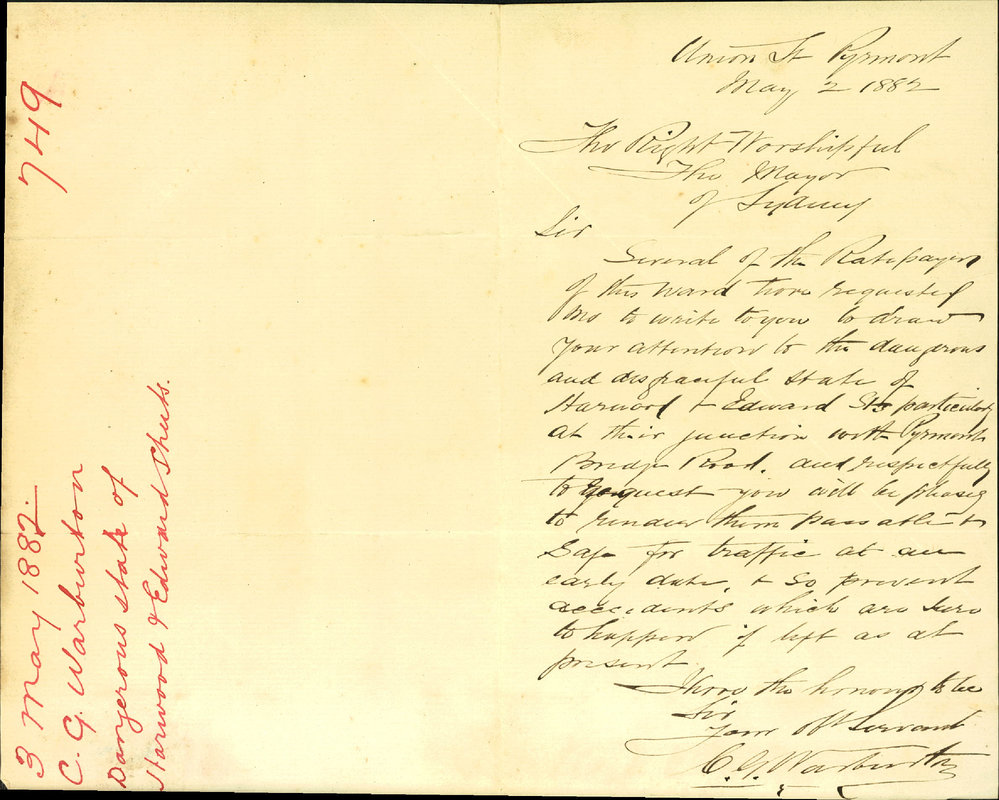 749
3 May 1882.
C. G. Warburton
Dangerous state of
Harwood & Edward Streets.
Union St Pyrmont
May 2 1882
The Right Worshipful
The Mayor
of Sydney
Sir
Several of the Ratepayers
of this ward have requested
me to write to you to draw
your attention to the dangerous
and disgraceful state of
Harwood & Edward Sts particularly
at their junction with Pyrmont
Bridge Road. and respectfully
to request you will be pleased
to render them passable &
safe for traffic at an
early date, & so prevent
accidents which are sure
to happen if left as at
present.
I have the honour to be
Sir
Your Obt Servant
C. G. Warburton